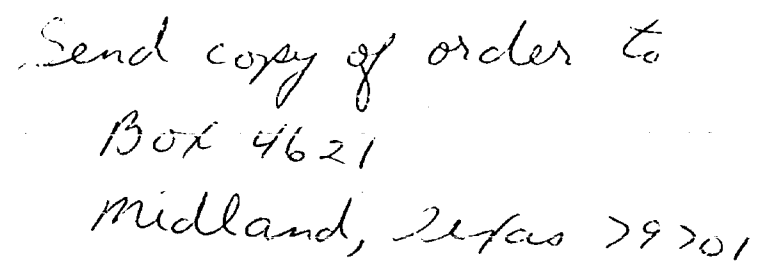 Send copy of order to
Box 4621
Midland, Texas 79701